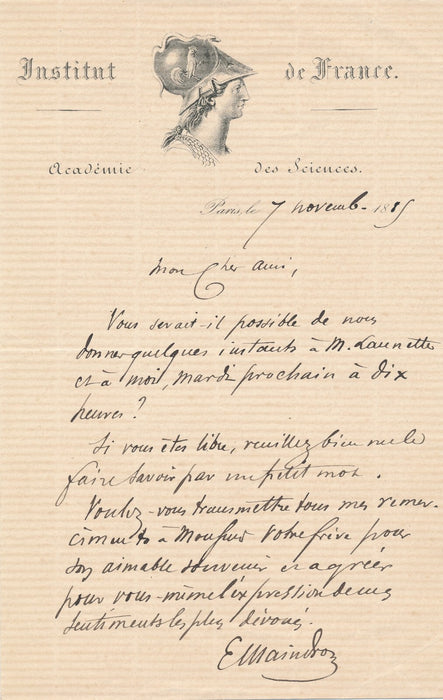 Institut de France.
Académie des Sciences.
Paris, le 7 novemb. 1885
Mon Cher ami,
Vous serait-il possible de nous
donner quelques instants à M. Launette
et à moi, mardi prochain à dix
heures ?
Si vous êtes libre, veuillez bien me le
faire savoir par un petit mot.
Voulez-vous transmettre tous mes remer-
ciments à Monsieur votre frère pour
son aimable souvenir et agréer
pour vous-même l'expression de mes
sentiments les plus dévoués.
E Maindron